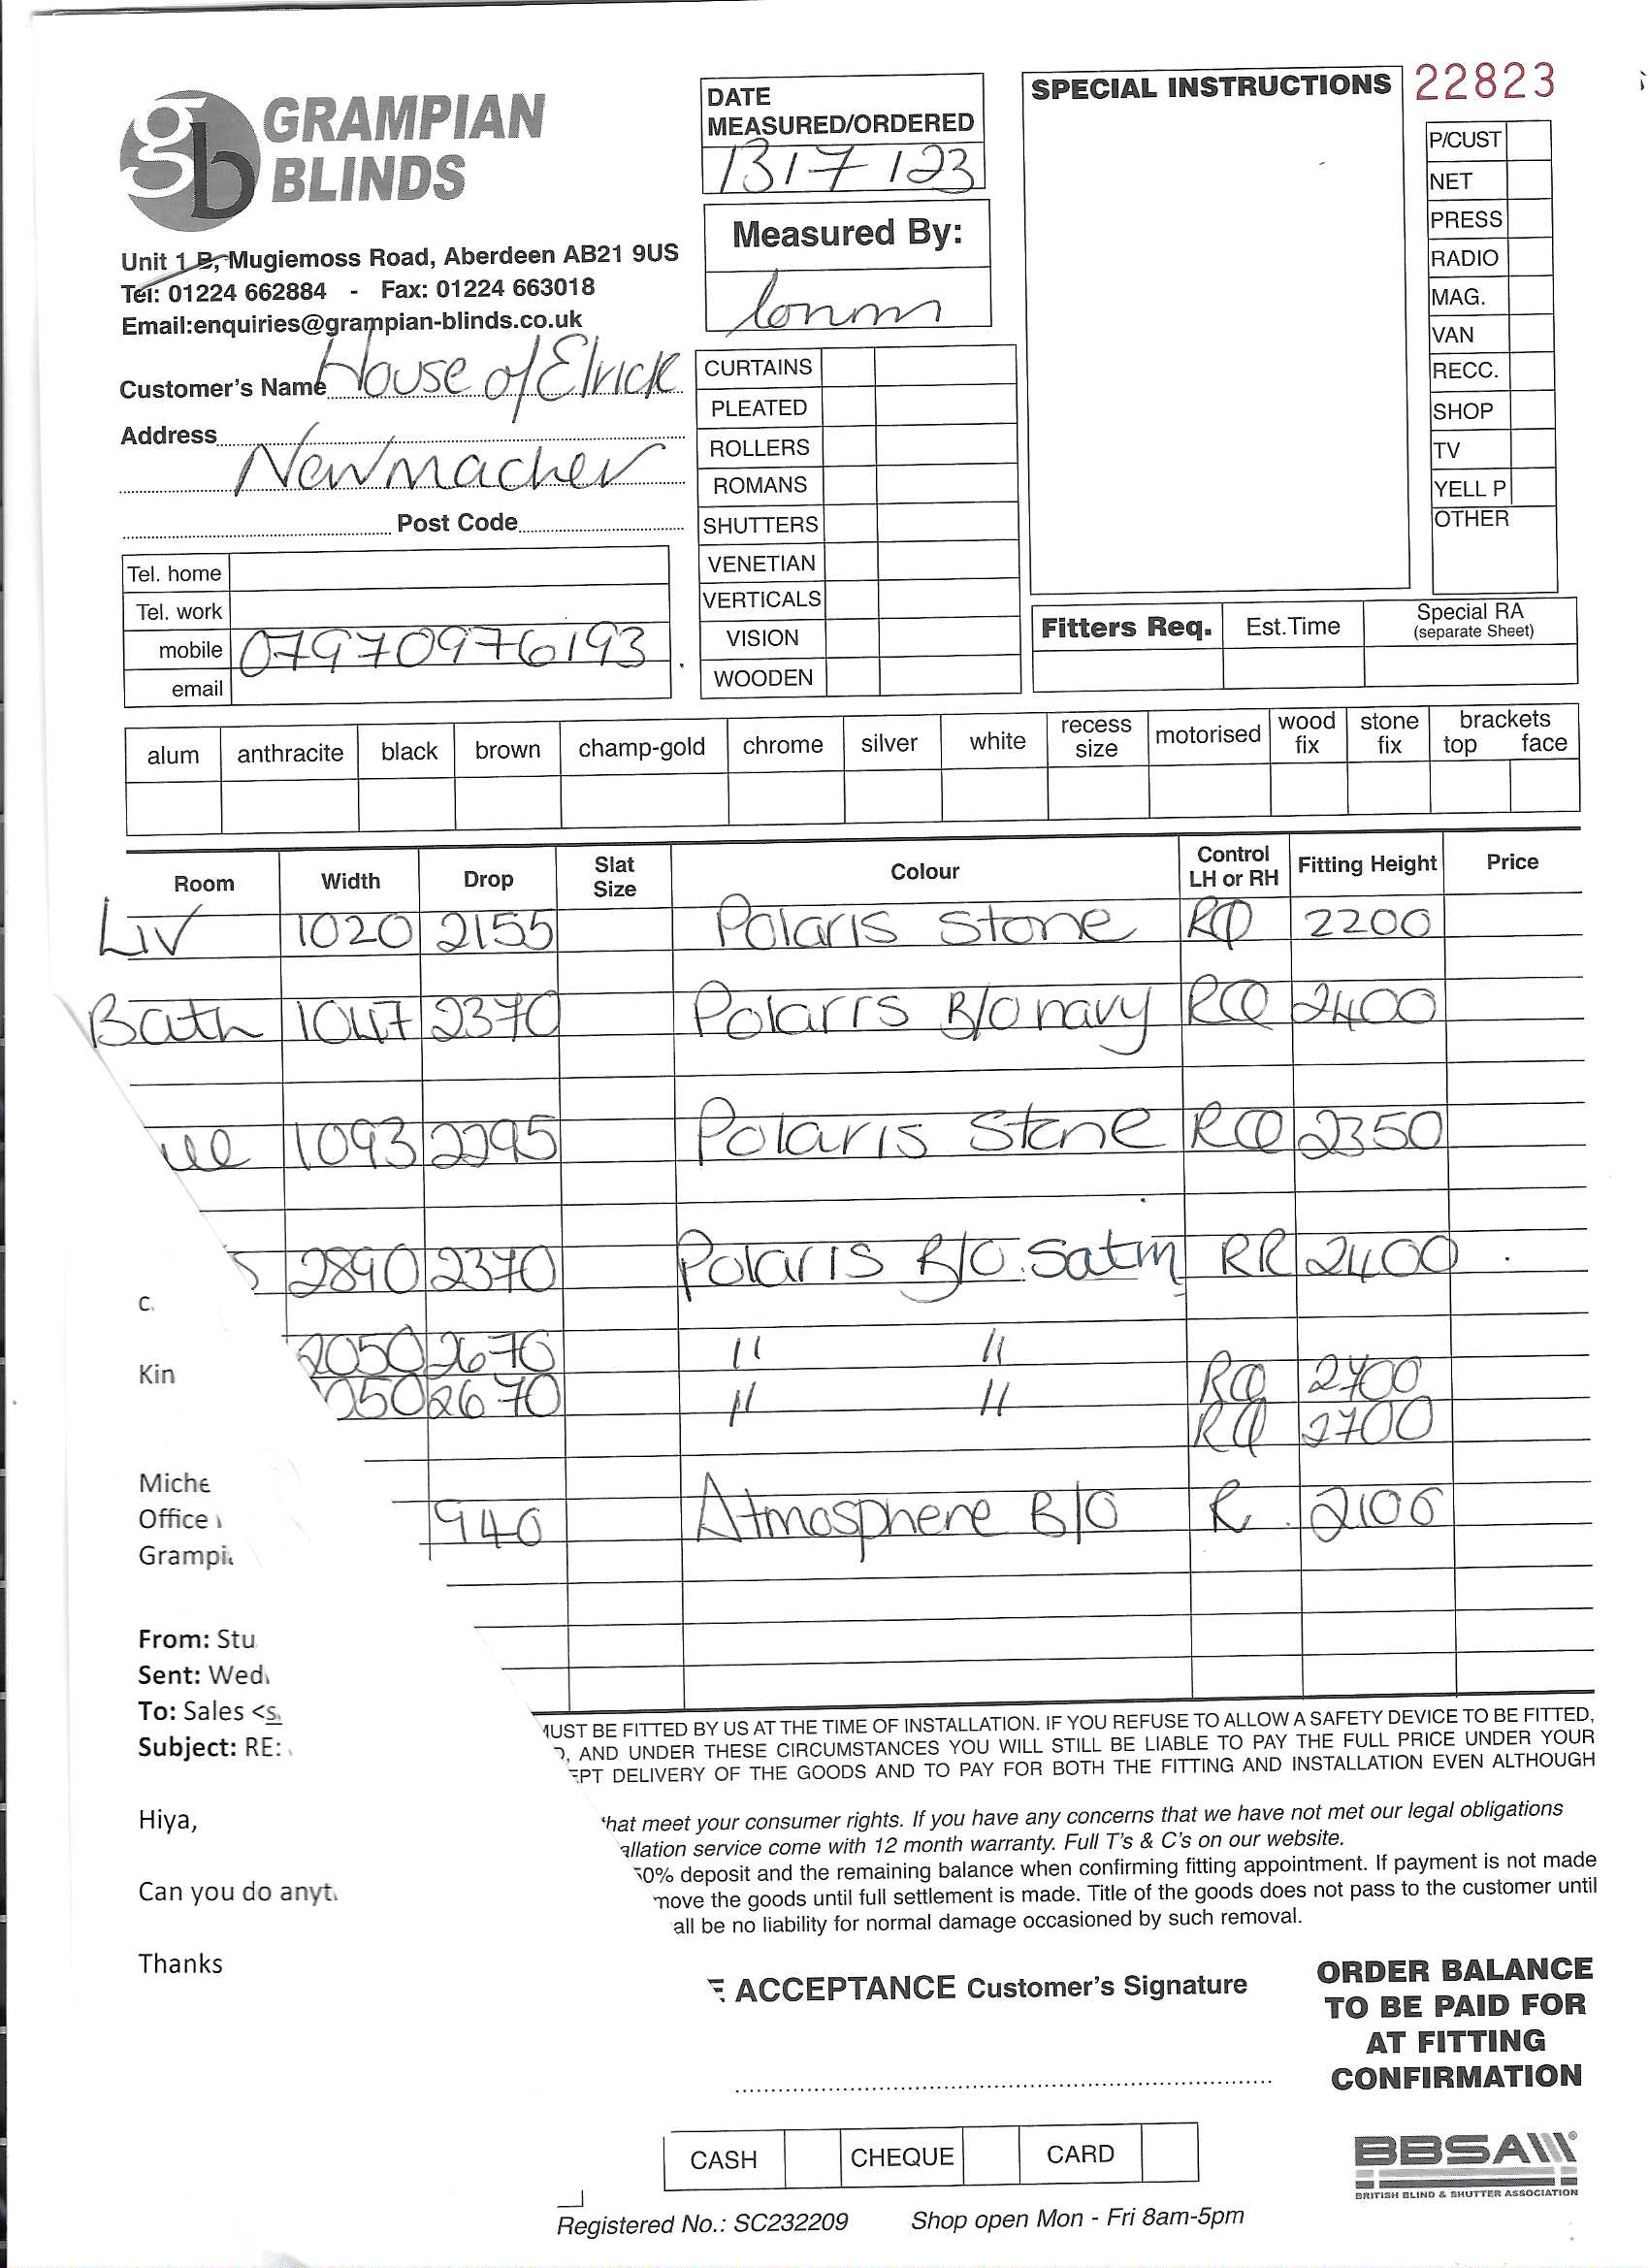 GRAMPIAN
BLINDS
Unit 1 B, Mugiemoss Road, Aberdeen AB21 9US
Tel: 01224 662884 - Fax: 01224 663018
Email:enquiries@grampian-blinds.co.uk
Customer's Name House of Elrick
Address
Newmacher
Post Code
Tel. home
Tel. work
mobile 07970976193
email
DATE
MEASURED/ORDERED
13/7/23
Measured By:
CURTAINS
PLEATED
ROLLERS
ROMANS
SHUTTERS
VENETIAN
VERTICALS
VISION
WOODEN
SPECIAL INSTRUCTIONS
22823
P/CUST
NET
PRESS
RADIO
MAG.
VAN
RECC.
SHOP
TV
YELL P
OTHER
Fitters Req. Est.Time Special RA
(separate Sheet)
alum anthracite black brown champ-gold chrome silver white recess size motorised wood fix stone fix brackets top face
Room Width Drop Slat Size Colour Control LH or RH Fitting Height Price
Liv 1020 2155 Polaris Stone 2200
Bath 1047 2370 Polaris B/O navy 2400
1093 2295 Polaris Stone 2350
2890 2370 Polaris B/O Satin RR 2400
2050 2670 " " 2700
050 2670 " " 2700
940 Atmosphere B/O R 2100
C.
Kin
Miche
Office
Grampi
From: Stu
Sent: Wed
To: Sales <s
Subject: RE:
Hiya,
Can you do anyt
Thanks
MUST BE FITTED BY US AT THE TIME OF INSTALLATION. IF YOU REFUSE TO ALLOW A SAFETY DEVICE TO BE FITTED,
AND UNDER THESE CIRCUMSTANCES YOU WILL STILL BE LIABLE TO PAY THE FULL PRICE UNDER YOUR
EPT DELIVERY OF THE GOODS AND TO PAY FOR BOTH THE FITTING AND INSTALLATION EVEN ALTHOUGH
that meet your consumer rights. If you have any concerns that we have not met our legal obligations
allation service come with 12 month warranty. Full T's & C's on our website.
50% deposit and the remaining balance when confirming fitting appointment. If payment is not made
move the goods until full settlement is made. Title of the goods does not pass to the customer until
all be no liability for normal damage occasioned by such removal.
E ACCEPTANCE Customer's Signature
ORDER BALANCE
TO BE PAID FOR
AT FITTING
CONFIRMATION
CASH CHEQUE CARD
BBSA
BRITISH BLIND & SHUTTER ASSOCIATION
Registered No.: SC232209 Shop open Mon - Fri 8am-5pm